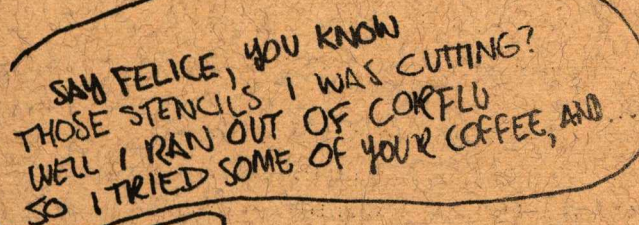 SAY FELICE, YOU KNOW
THOSE STENCILS I WAS CUTTING?
WELL I RAN OUT OF CORFLU
SO I TRIED SOME OF YOUR COFFEE, AND...